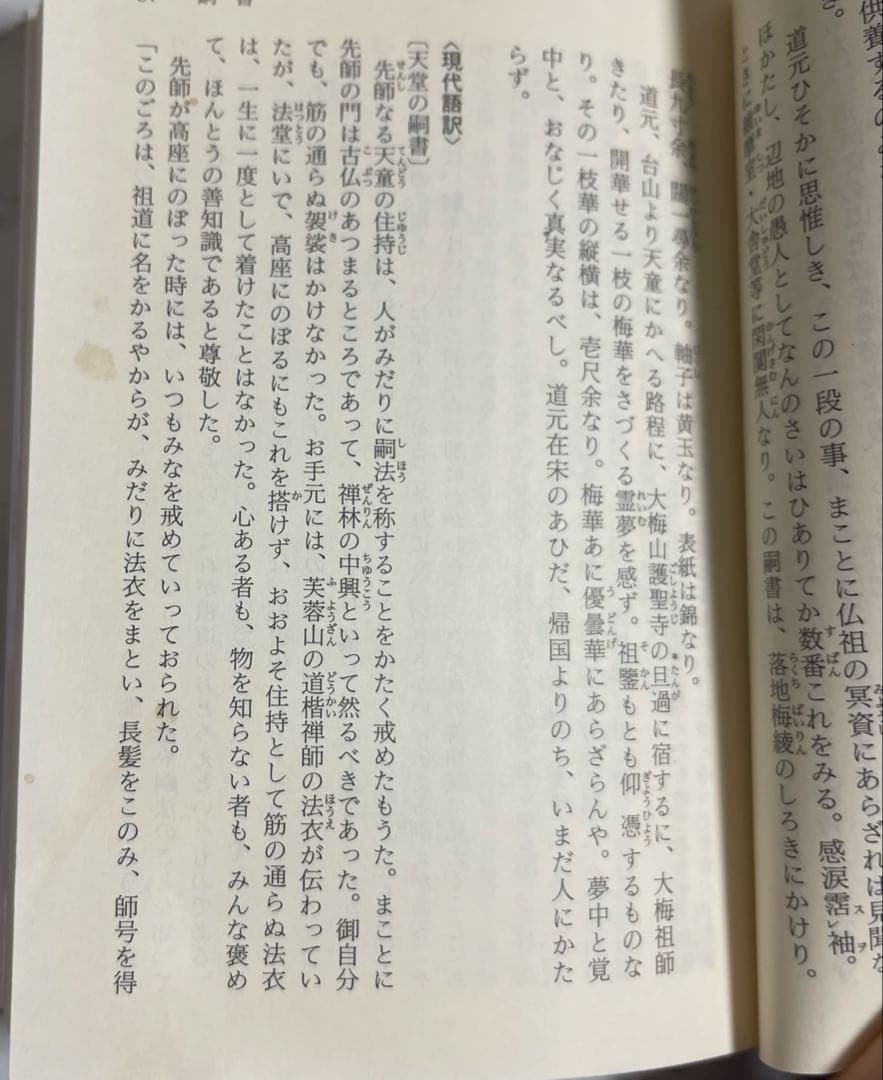 嗣書
供養するのみ
道元ひそかに思惟しき、この一段の事、まことに仏祖の冥資にあらざれは見聞な
ほかたし、辺地の愚人としてなんのさいはひありてか数番これをみる。感涙霑レ袖。
大舎堂等に閑闃無人なり。この嗣書は、落地梅綾のしろきにかけり。
長九寸余、闊一尋余なり。軸子は黄玉なり。表紙は錦なり。
道元、台山より天童にかへる路程に、大梅山護聖寺の旦過に宿するに、大梅祖師
きたり、開華せる一枝の梅華をさづくる霊夢を感ず。祖鑒もとも仰憑するものな
り。その一枝華の縦横は、壱尺余なり。梅華あに優曇華にあらざらんや。夢中と覚
中と、おなじく真実なるべし。道元在宋のあひだ、帰国よりのち、いまだ人にかた
らず。
〈現代語訳〉
〔天堂の嗣書〕
先師なる天童の住持は、人がみだりに嗣法を称することをかたく戒めたもうた。まことに
先師の門は古仏のあつまるところであって、禅林の中興といって然るべきであった。御自分
でも、筋の通らぬ袈裟はかけなかった。お手元には、芙蓉山の道楷禅師の法衣が伝わってい
たが、法堂にいで、高座にのぼるにもこれを搭けず、おおよそ住持として筋の通らぬ法衣
は、一生に一度として着けたことはなかった。心ある者も、物を知らない者も、みんな褒め
て、ほんとうの善知識であると尊敬した。
先師が高座にのぼった時には、いつもみなを戒めていっておられた。
「このごろは、祖道に名をかるやからが、みだりに法衣をまとい、長髪をこのみ、師号を得